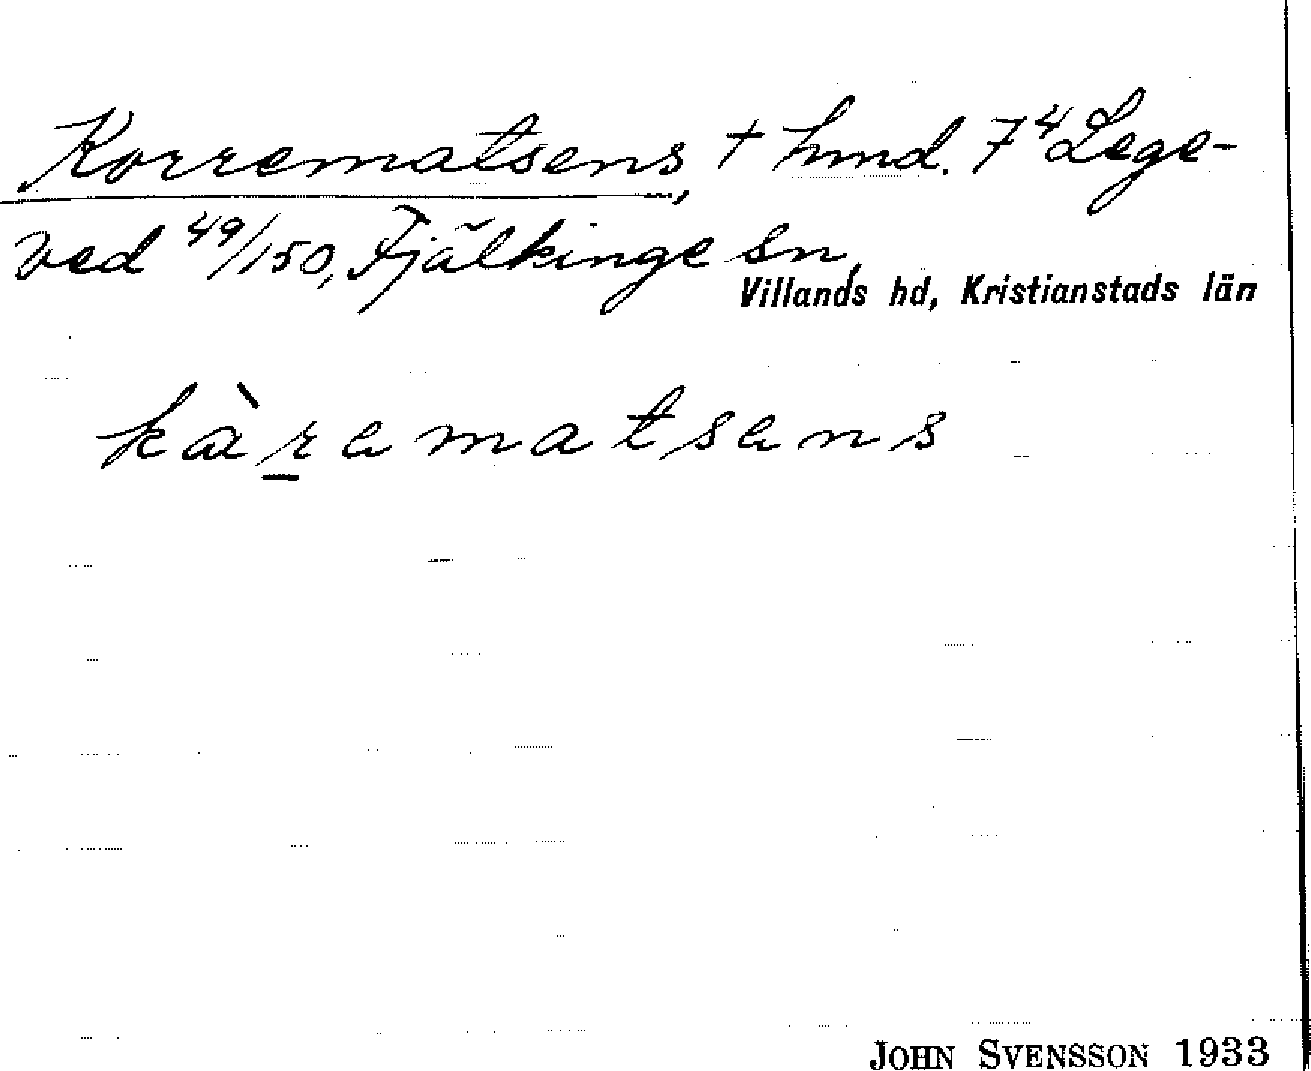 Korrematsens, † hmd. 7⁴ Lege-
ved ⁴⁹/150, Fjälkinge sn,
Villands hd, Kristianstads län
kàrematsens
JOHN SVENSSON 1933